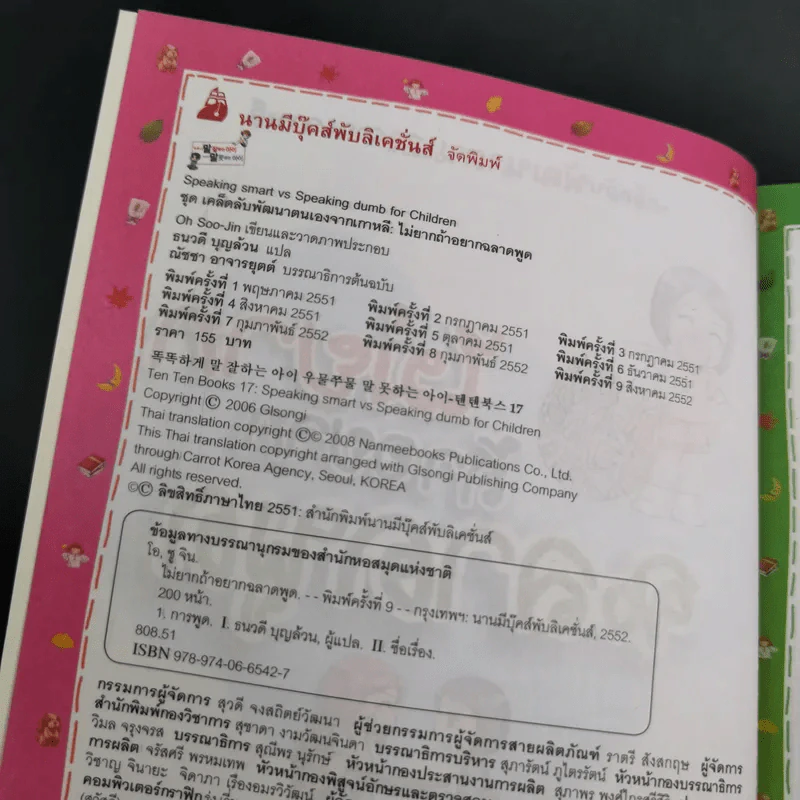 นานมีบุ๊คส์พับลิเคชั่นส์ จัดพิมพ์
Speaking smart vs Speaking dumb for Children
ชุด เคล็ดลับพัฒนาตนเองจากเกาหลี: ไม่ยากถ้าอยากฉลาดพูด
Oh Soo-Jin เขียนและวาดภาพประกอบ
ธนวดี บุญล้วน แปล
ณัชชา อาจารยุตต์ บรรณาธิการต้นฉบับ
พิมพ์ครั้งที่ 1 พฤษภาคม 2551 พิมพ์ครั้งที่ 2 กรกฎาคม 2551 พิมพ์ครั้งที่ 3 กรกฎาคม 2551
พิมพ์ครั้งที่ 4 สิงหาคม 2551 พิมพ์ครั้งที่ 5 ตุลาคม 2551 พิมพ์ครั้งที่ 6 ธันวาคม 2551
พิมพ์ครั้งที่ 7 กุมภาพันธ์ 2552 พิมพ์ครั้งที่ 8 กุมภาพันธ์ 2552 พิมพ์ครั้งที่ 9 สิงหาคม 2552
ราคา 155 บาท
똑똑하게 말 잘하는 아이 우물쭈물 말 못하는 아이-텐텐북스 17
Ten Ten Books 17: Speaking smart vs Speaking dumb for Children
Copyright © 2006 Glsongi
Thai translation copyright ©© 2008 Nanmeebooks Publications Co., Ltd.
This Thai translation copyright arranged with Glsongi Publishing Company
through Carrot Korea Agency, Seoul, KOREA
All rights reserved.
©© ลิขสิทธิ์ภาษาไทย 2551: สำนักพิมพ์นานมีบุ๊คส์พับลิเคชั่นส์
ข้อมูลทางบรรณานุกรมของสำนักหอสมุดแห่งชาติ
โอ, ซู จิน.
ไม่ยากถ้าอยากฉลาดพูด. - - พิมพ์ครั้งที่ 9 - - กรุงเทพฯ: นานมีบุ๊คส์พับลิเคชั่นส์, 2552.
200 หน้า.
1. การพูด. I. ธนวดี บุญล้วน, ผู้แปล. II. ชื่อเรื่อง.
808.51
ISBN 978-974-06-6542-7
กรรมการผู้จัดการ สุวดี จงสถิตย์วัฒนา ผู้ช่วยกรรมการผู้จัดการสายผลิตภัณฑ์ ราตรี สังสกฤษ ผู้จัดการ
สำนักพิมพ์กองวิชาการ สุชาดา งามวัฒนจินดา บรรณาธิการบริหาร สุภารัตน์ ภูไตรรัตน์ หัวหน้ากองบรรณาธิการ
วิมล จรุงจรส บรรณาธิการ สุณีพร นุรักษ์ หัวหน้ากองประสานงานการผลิต
การผลิต จรัสศรี พรหมเทพ หัวหน้ากองพิสูจน์อักษรและตรวจ
วิชาญ จินายะ จิดาภา เรืองอมรวิวัฒน์
คอมพิวเตอร์กราฟิก